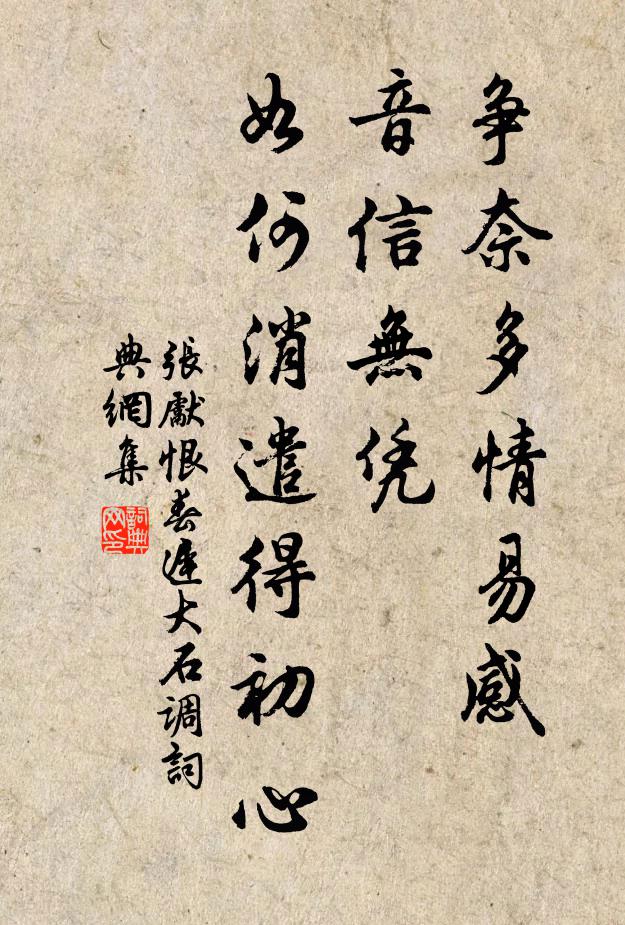 争奈多情易感
音信無凭
如何消遣得初心
張獻恨春遲大石調詞
典網集
詞典网印